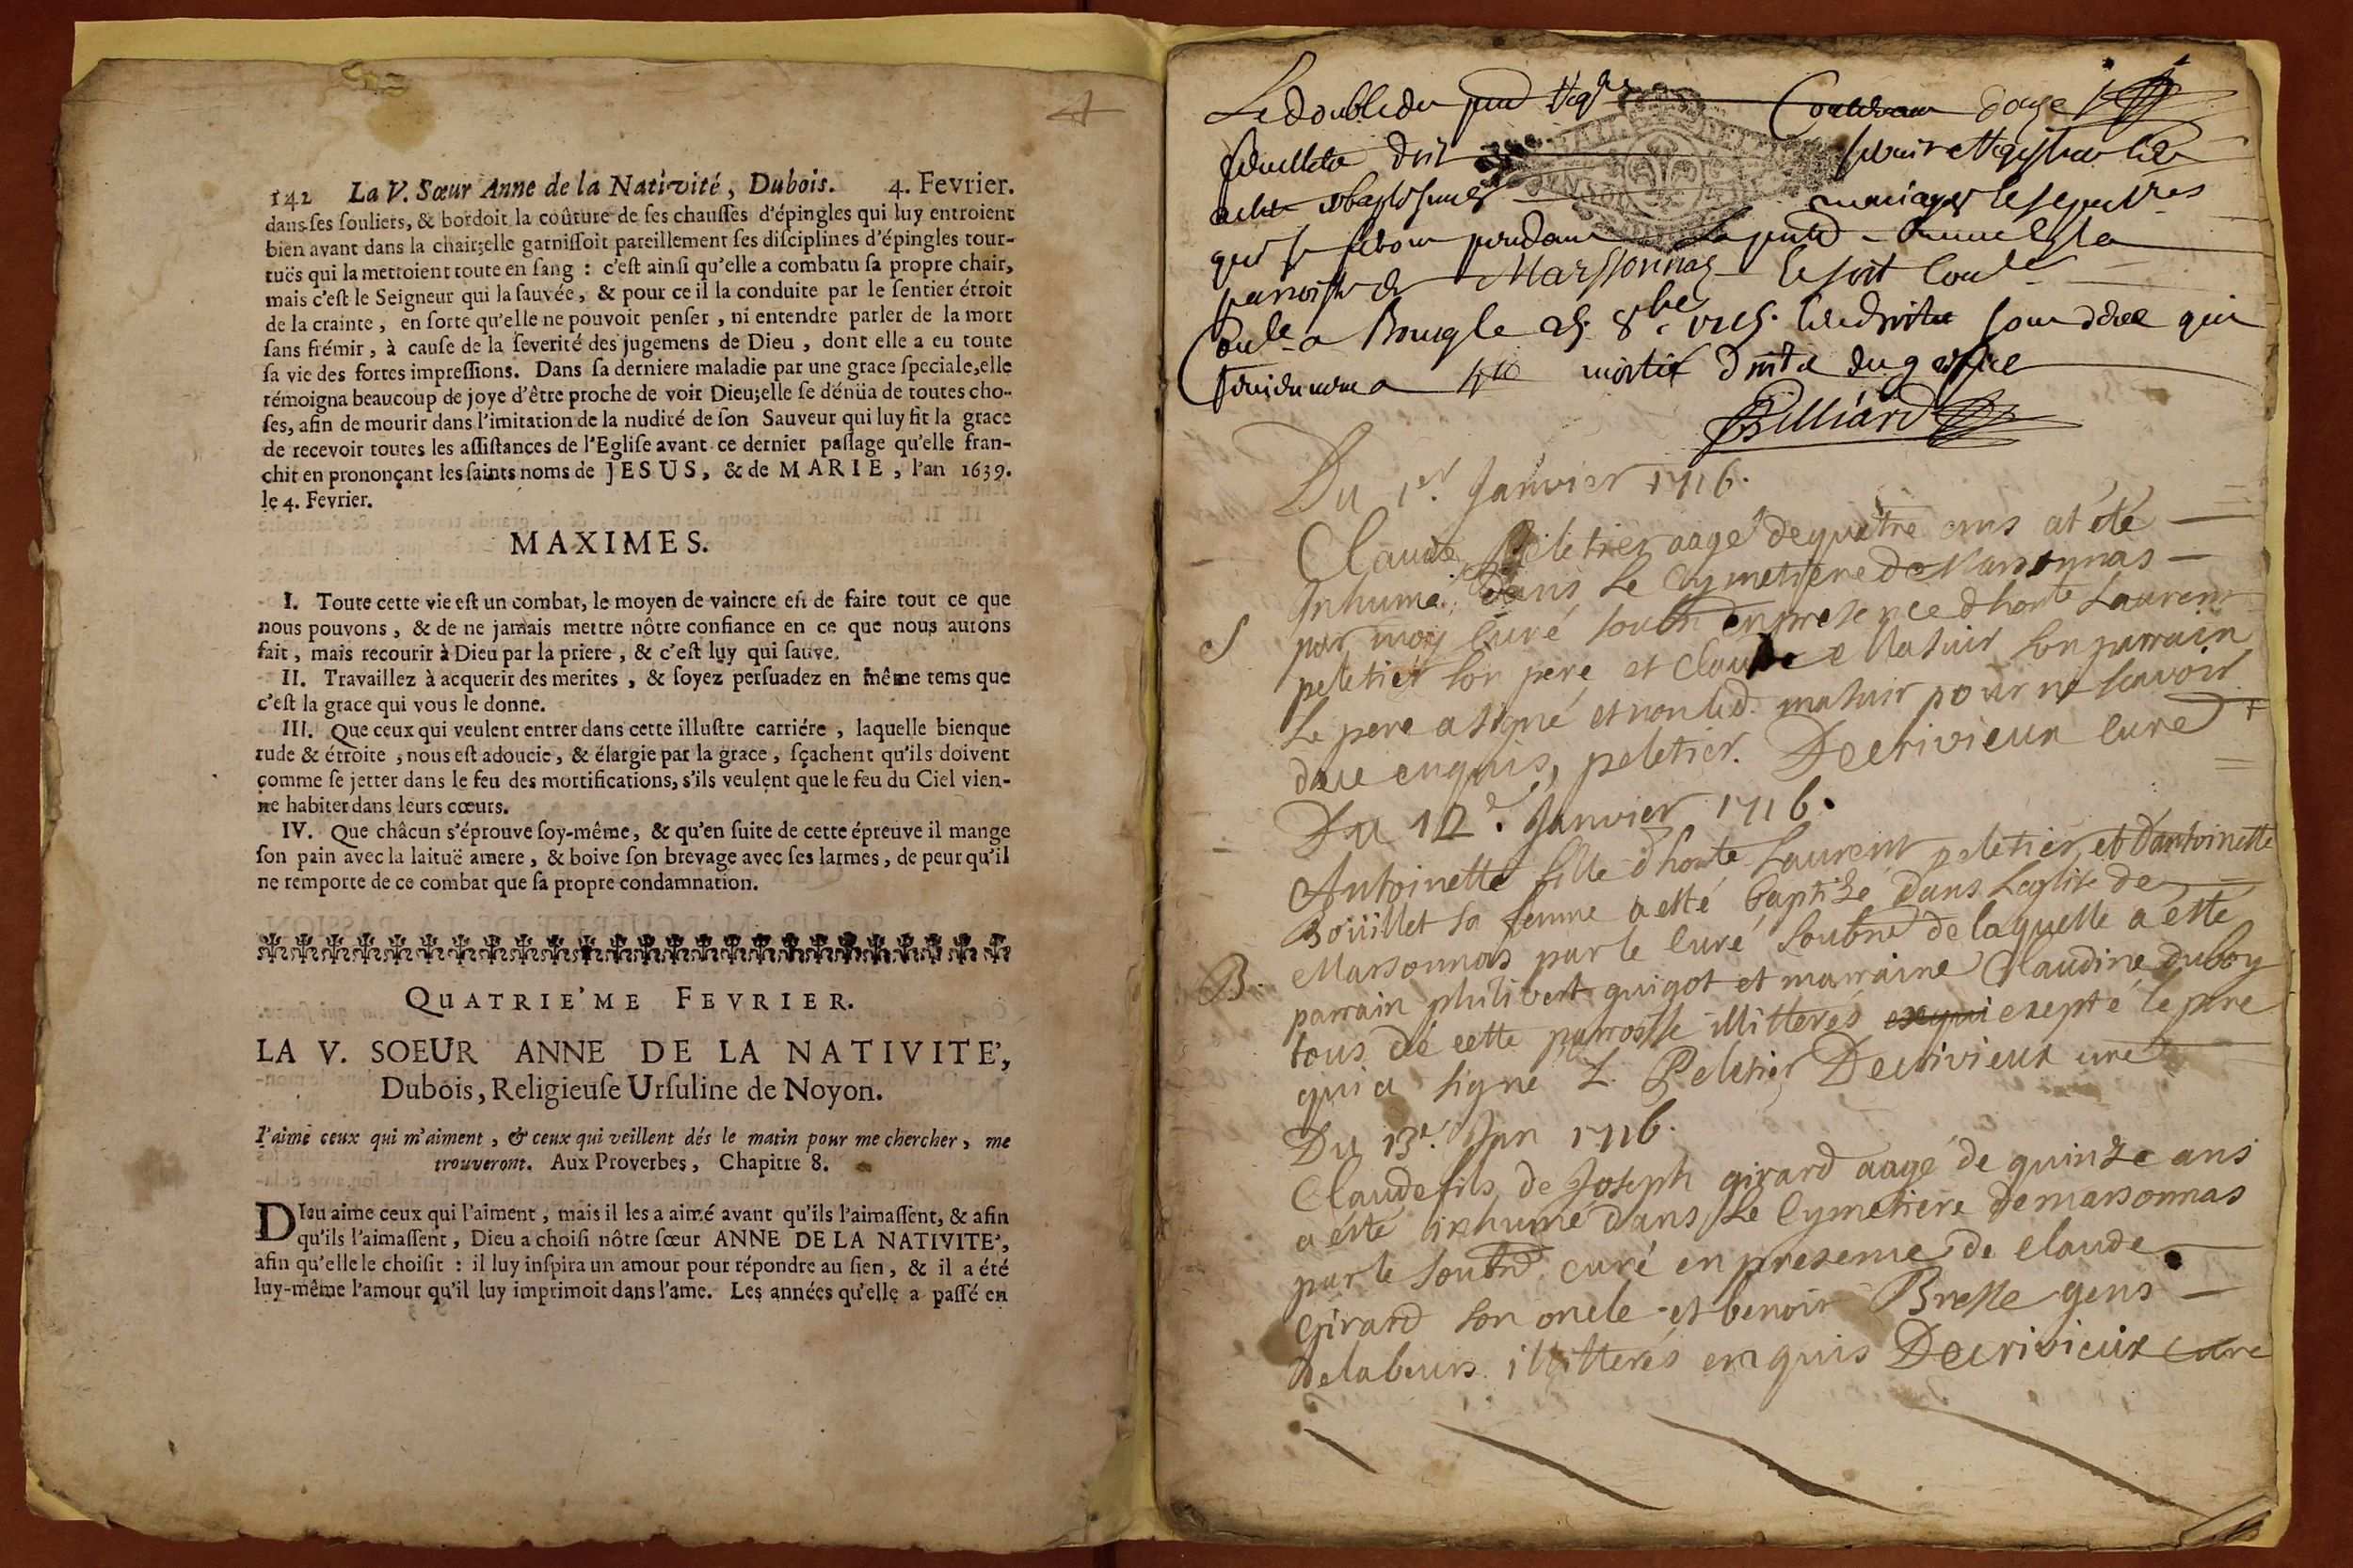 142 La V. Sœur Anne de la Nativité, Dubois. 4. Fevrier.
dans ses souliers, & bordoit la coûture de ses chausses d'épingles qui luy entroient
bien avant dans la chair;elle garnissoit pareillement ses disciplines d'épingles tour-
tuës qui la mettoient toute en sang : c'est ainsi qu'elle a combatu sa propre chair,
mais c'est le Seigneur qui la sauvée, & pour ce il la conduite par le sentier étroit
de la crainte, en sorte qu'elle ne pouvoit penser, ni entendre parler de la mort
sans frémir, à cause de la severité des jugemens de Dieu, dont elle a eu toute
sa vie des fortes impressions. Dans sa derniere maladie par une grace speciale,elle
témoigna beaucoup de joye d'être proche de voir Dieu;elle se dénüa de toutes cho-
ses, afin de mourir dans l'imitation de la nudité de son Sauveur qui luy fit la grace
de recevoir toutes les assistances de l'Eglise avant ce dernier passage qu'elle fran-
chit en prononçant les saints noms de JESUS, & de MARIE, l'an 1639.
le 4. Fevrier.
MAXIMES.
I. Toute cette vie est un combat, le moyen de vaincre est de faire tout ce que
nous pouvons, & de ne jamais mettre nôtre confiance en ce que nous aurons
fait, mais recourir à Dieu par la priere, & c'est luy qui sauve.
II. Travaillez à acquerir des merites, & soyez persuadez en même tems que
c'est la grace qui vous le donne.
III. Que ceux qui veulent entrer dans cette illustre carriére, laquelle bienque
rude & étroite, nous est adoucie, & élargie par la grace, sçachent qu'ils doivent
comme se jetter dans le feu des mortifications, s'ils veulent que le feu du Ciel vien-
ne habiter dans leurs cœurs.
IV. Que châcun s'éprouve soy-même, & qu'en suite de cette épreuve il mange
son pain avec la laituë amere, & boive son brevage avec ses larmes, de peur qu'il
ne remporte de ce combat que sa propre condamnation.
QUATRIE'ME FEVRIER.
LA V. SOEUR ANNE DE LA NATIVITE',
Dubois, Religieuse Ursuline de Noyon.
J'aime ceux qui m'aiment, & ceux qui veillent dés le matin pour me chercher, me
trouveront. Aux Proverbes, Chapitre 8.
DIeu aime ceux qui l'aiment, mais il les a aimé avant qu'ils l'aimassent, & afin
qu'ils l'aimassent, Dieu a choisi nôtre sœur ANNE DE LA NATIVITE',
afin qu'elle le choisit : il luy inspira un amour pour répondre au sien, & il a été
luy-même l'amour qu'il luy imprimoit dans l'ame. Les années qu'elle a passé en
Le double du
mariages
paroisse de Marsonnas
a Bourg le
Billiard
Du 1er. Janvier 1716.
Claude Peletier aagé de quatre ans at été
Inhumé dans Le Cymetiere de Marsonnas
S par moy Curé soubné en presence dhonte Laurent
peletier son pere et Claude Masuir son parrain
Le pere a signé et non led. masuir pour ne scavoir
enquis, peletier. Decrivieux curé
Du 12e. Janvier 1716.
Antoinette fille dhonte Laurent peletier et dantoinette
Boüillet sa femme a esté baptizé dans Leglise de
B. Marsonnas par le curé soubné de laquelle a esté
parrain philibert guigot et marraine Claudine duboy
tous de cette parroisse illitterés exepté le pere
qui a signé L. Peletier Decrivieux curé
Du 13e. Jan 1716.
Claude fils de Joseph girard aagé de quinze ans
a esté inhumé dans Le Cymetiere de marsonnas
par le soubné curé en presence de claude
Girard son oncle et benoit Bresse gens
de labeurs illitterés enquis Decrivieux Curé